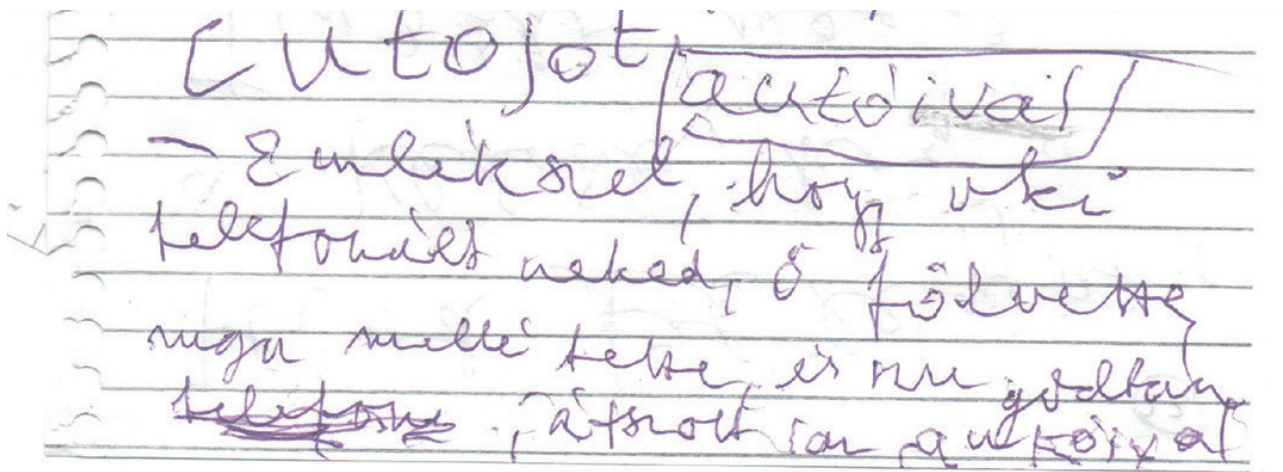 autóival
- Emlékszel, hogy vki
telefonált neked, ő fölvette,
maga mellé tette, és nyugodtan
telefonu, játszott az autóival